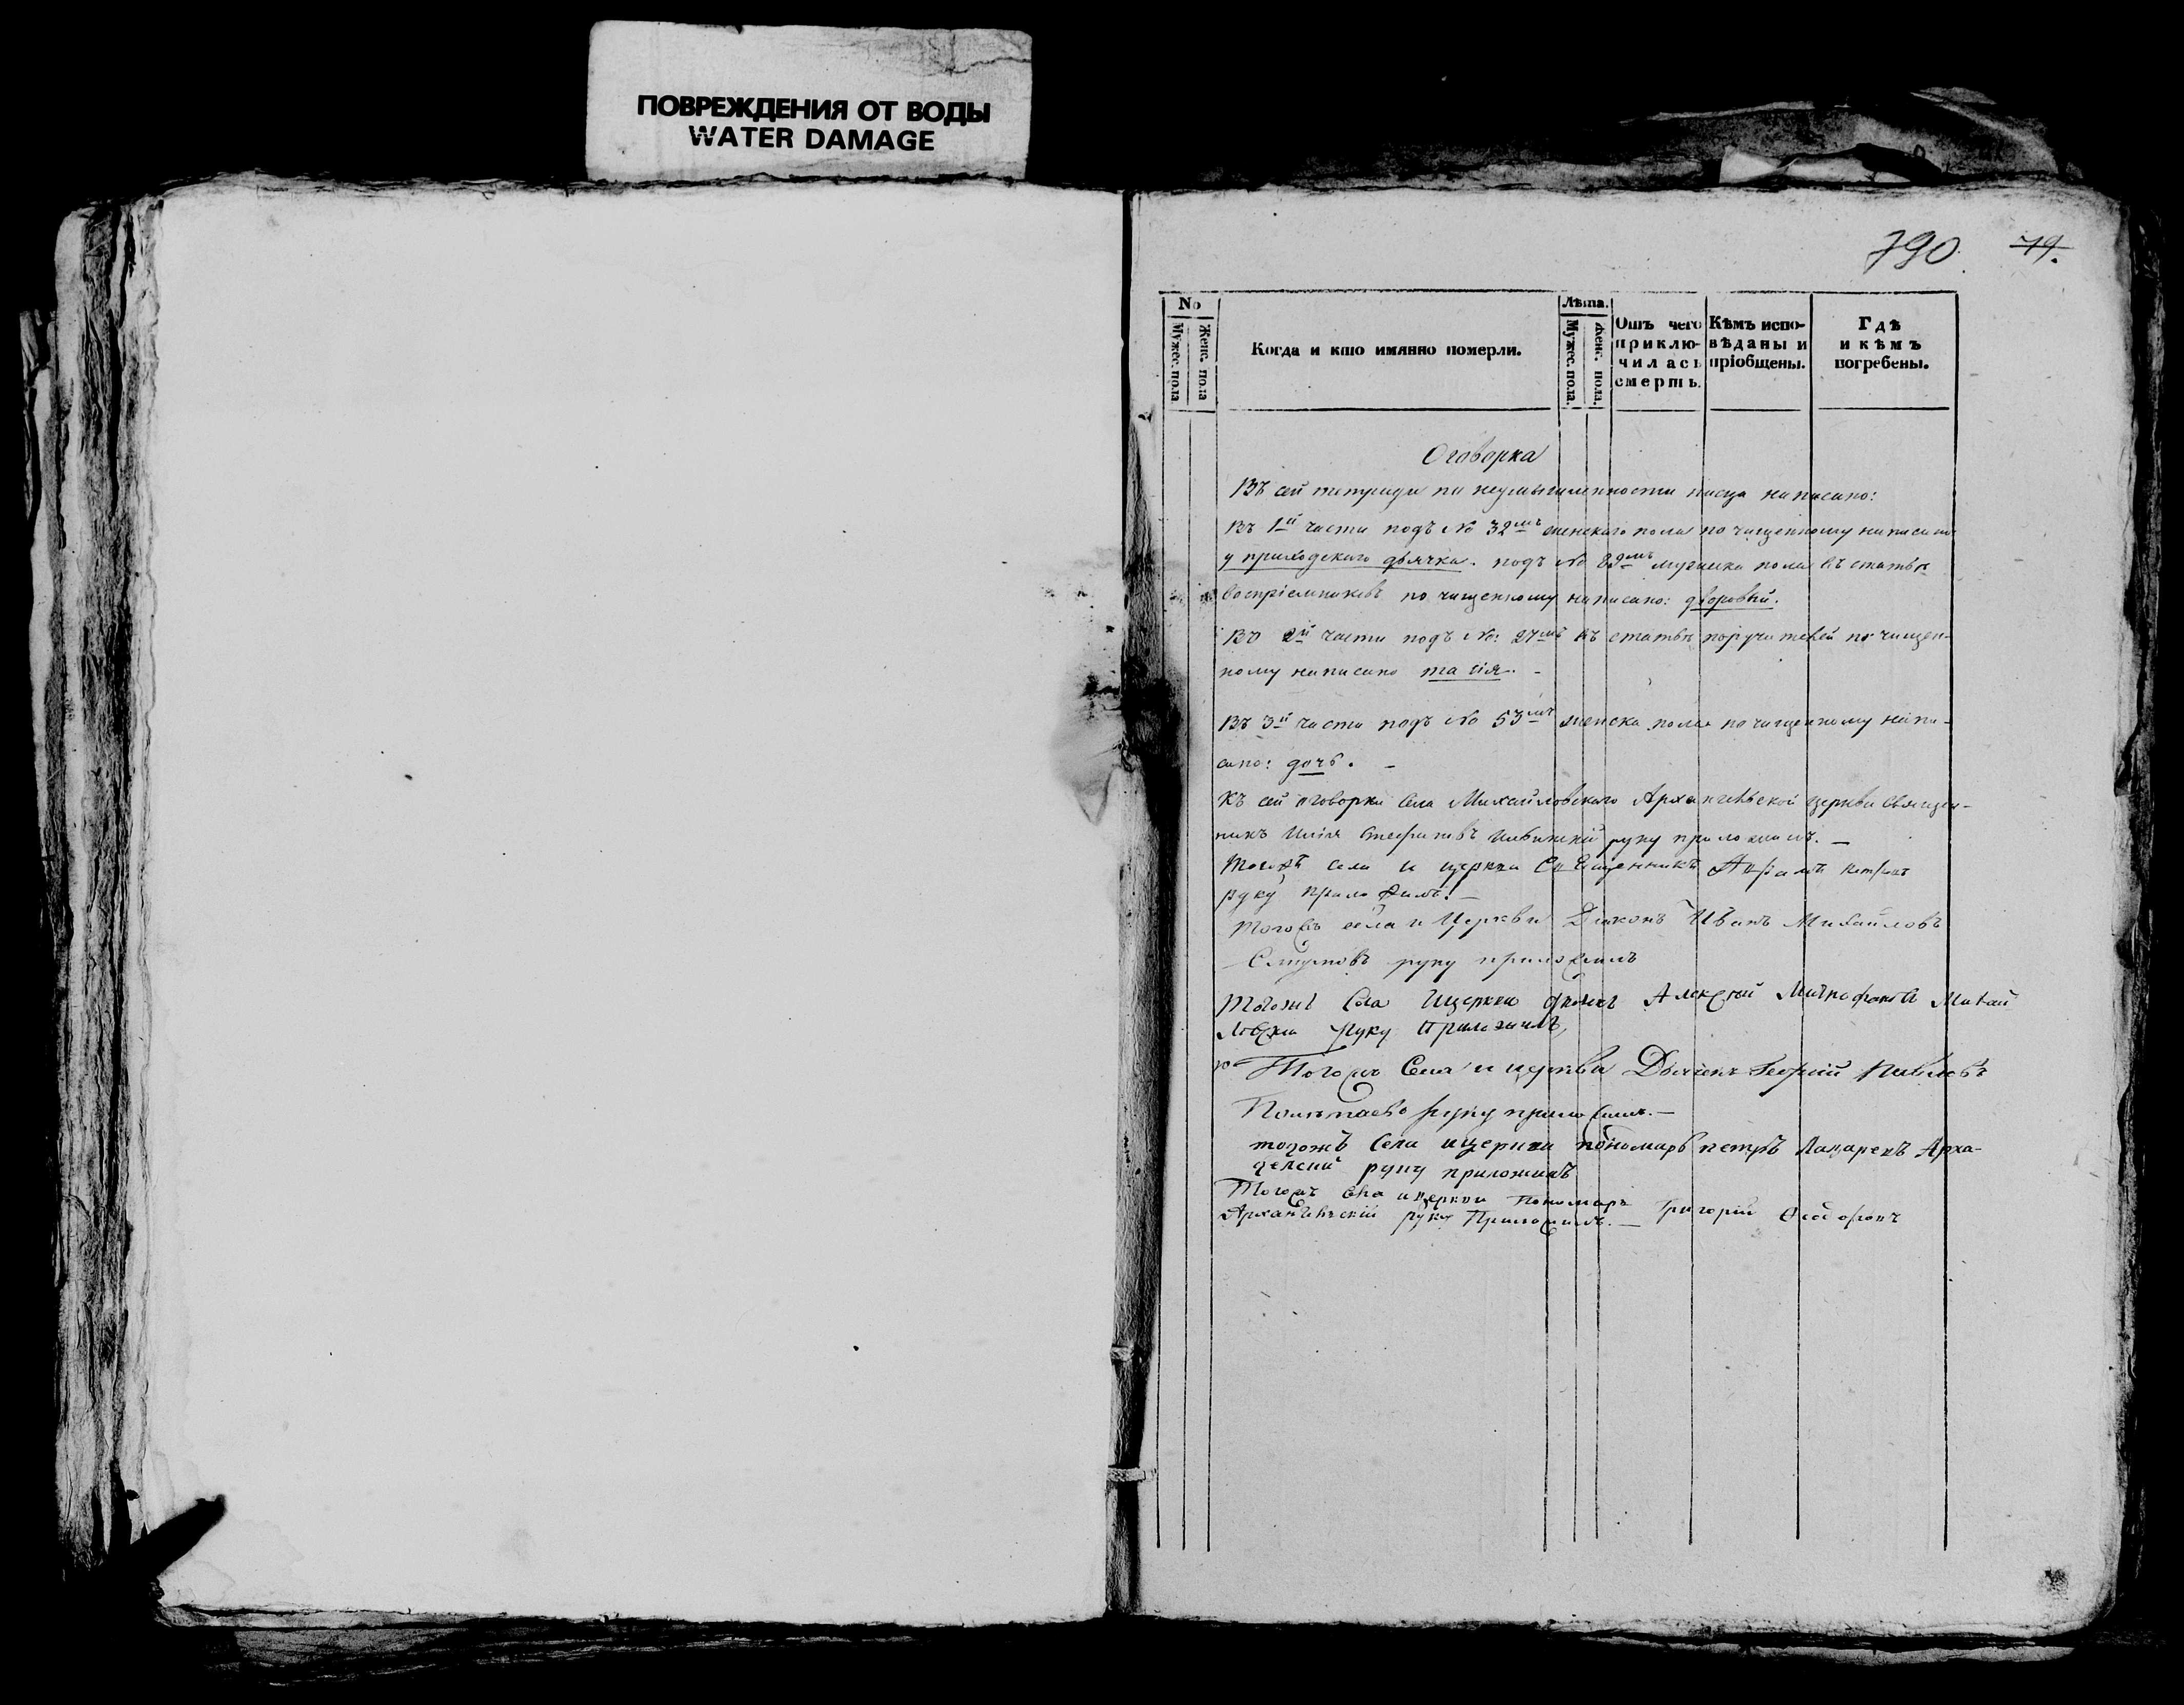 ПОВРЕЖДЕНИЯ ОТ ВОДЫ
WATER DAMAGE
790. 79.
No
Мужес. пола
Женс. пола
Когда и кто имянно померли.
Лѣта.
Мужес. пола.
Женс. пола.
Отъ чего
приклю-
чилась
смерть.
Кѣмъ испо-
вѣданы и
пріобщены.
Гдѣ
и кѣмъ
погребены.
Оговорка
Въ сей тетради по неумышленности писца написано:
Въ 1й части подъ No 32мъ женскаго пола по чищенному написано
у приходскаго дьячка. подъ No мужеска пола въ статьѣ
воспріемниковъ по чищенному написано: дворовый.
Во 2й части подъ No: 27мъ въ статьѣ поручителей по чищен-
ному написано
Въ 3й части подъ No 53мъ женска пола по чищенному напи-
сано: дочь.
Къ сей оговорки села Михайловскаго Архангельской церкви священ-
никъ Илія Стефановъ руку приложилъ.
Тогожъ села и церкви Священникъ
руку приложилъ.
Тогожъ села и Церкви Діаконъ Иванъ Михайловъ
руку приложилъ
Тогожъ Села и церкви Алексѣй Митрофановъ Михай
ловски руку приложилъ
Тогожъ Села и церкви Дьячекъ Георгій Павловъ
руку приложилъ.
тогожъ Села и церкви пономарь петръ Лазаревъ Арха-
гелский руку приложилъ
Тогожъ села и церкви Пономарь Григорій Ѳеодоровъ
Архангельскій руку Приложилъ.